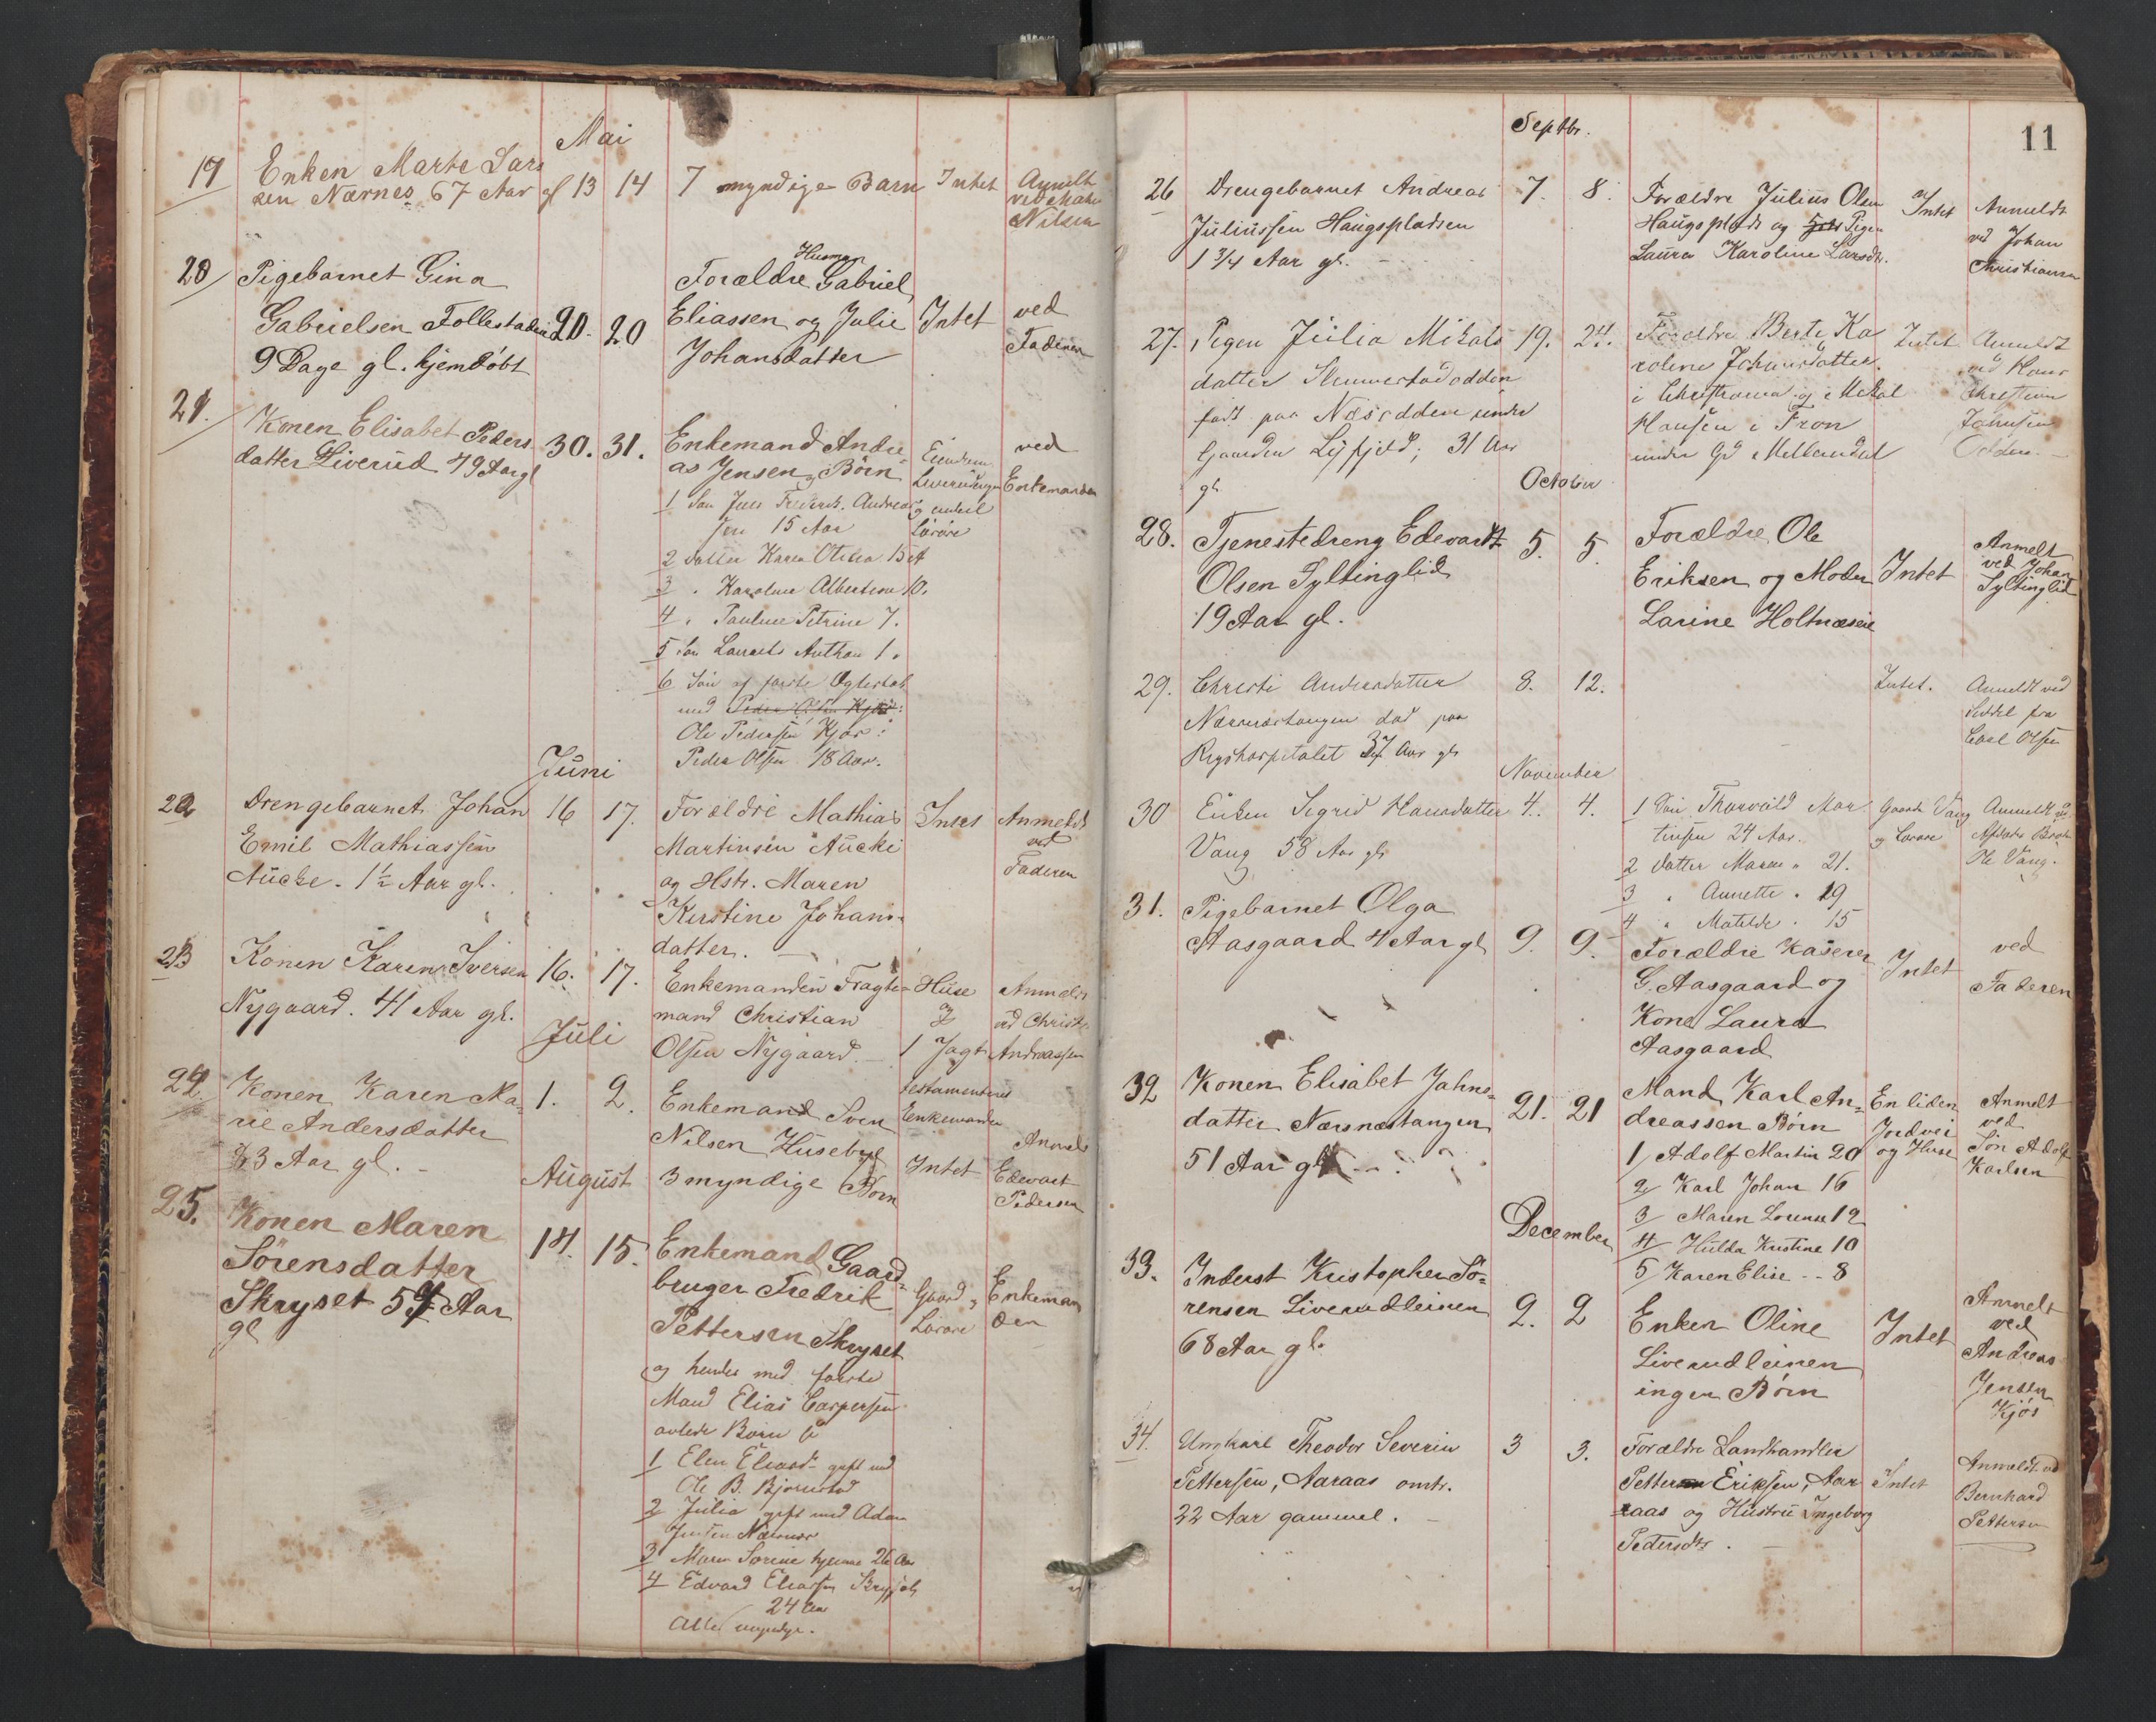 Mai
19 Enken Marte Lars
sen Nærnes 67 Aar gl 13 14 7 myndige Barn Intet Anmelt
ved
Nilsen
20 Pigebarnet Gina
Gabrielsen Follestad 20. 20
9 Dage gl. hjemdöbt
Husman
Forældre Gabriel
Eliassen og Julie
Johansdatter
Intet
ved
Faderen
21. Konen Elisabet Peders
datter Liverud 49 Aar gl 30. 31.
Enkemand Andre-
as Jensen Børn
1 Søn Jens Frederik Andreas
sen 15 Aar
2 Datter Karen Otilia 15
3 " Karoline Albertine 10.
4 " Pauline Petrine 7.
5 Søn Laurits Anthon 1.
6 Søn af første Ægteskab
med Peder Olsen Kjøs:
Ole Pedersen Kjøs:
Peder Olsen 18 Aar.
Eiendom
og endeel
Løsøre
ved
Enkemanden
Juni
22 Drengebarnet Johan 16 17.
Emil Mathiassen
Aücke. 1½ Aar gl.
Forældre Mathias
Martinsen Aücke
og Hstr. Maren
Kirstine Johans-
datter.
Intet
Anmeldt
ved
Faderen
23 Konen Karen Iversen 16. 17.
Nygaard. 41 Aar gl.
Enkemanden Fragte-
mand Christian
Olsen Nygaard.
Huse
og
1 Jagt
Anmeldt
ved Christ.
Andreassen
Juli
24. Konen Karen Ma- 1. 2.
rie Andersdatter
73 Aar gl.
Enkemand Sven
Nilsen Huseby
3 myndige Börn
testamenteret
Enkemanden
Intet
Anmelt
Edevart
Pedersen
August
25. Konen Maren 14. 15.
Sörensdatter
Skryset 54 Aar
gl
Enkemand Gaard-
bruger Fredrik
Pettersen Skryset
og hendes med første
Mand Elias Caspersen
avlede Børn
1 Elen Eliasd. gift med
Ole B. Bjørnstad
2 Julia gift med Adam
Jensen Nærnes
3 Maren Sorine hjemme 26 Aar
4 Edvard Eliassen Skryset
24 Aar
Alle myndige.
Gaard og
Løsøre
Enkeman
den
11
Septbr.
26 Drengebarnet Andreas 7. 8.
Juliussen Haugspladsen
1 3/4 Aar gl.
Forældre Julius Olsen
Haugsplads og Pigen
Laura Karoline Larsdtr.
Intet
Anmeldt
ved Johan
Christiansen
27. Pigen Julia Mikals 19. 24.
datter Skmmestadodden
født paa Næsodden under
Gaarden Lysfjeld; 31 Aar
gl.
Forældre Berte Ka
roline Johansdatter
i Christiania og Mikal
Hansen i Tron
under Gd Mellemdal
Intet
Anmeldt
ved Hans
Christian
Johnsen
Odden.
October
28. Tjenestedreng Edevardt 5. 5
Olsen Syltinglid
19 Aar gl.
Forældre Ole
Eriksen og Moder
Larine Holtnæseie
Intet
Anmelt
ved Johan
Syltinglid
29. Christi Andersdatter 8. 12.
Nærsnæstangen død paa
Rigshospitalet 37 Aar gl
Intet.
Anmeldt ved
Seddel fra
Carl Olsen
November
30 Enken Sigrid Hansdatter 4. 4.
Vang 58 Aar gl
1 Søn Thorvald Mar
tinsen 24 Aar.
2 Datter Maren " 21.
3 " Annette " 19
4 " Matilde " 15
Gaarde Vang
og Løsøre
Anmeldt ved
Afdødes Broder
Ole Vang.
31. Pigebarnet Olga
Aasgaard 4 Aar gl 9. 9.
Forældre Kaserer
G. Aasgaard og
Kone Laura
Aasgaard
Intet
ved
Faderen
32 Konen Elisabet Jahns- 21. 21
datter Nærsnæstangen
51 Aar gl
Mand Karl An-
dreassen Börn
1/ Adolf Martin 20
2/ Karl Johan 16
3/ Maren Lovise 12
4/ Hulda Kristine 10
5/ Karen Elise -- 8
En liden
Jordvei
og Huse
Anmelt
ved
Søn Adolf
Karlsen
December
33. Inderst Kristopher Sö-
rensen Liverudleinen 2. 2
68 Aar gl.
Enken Oline
Liverudleinen
ingen Börn
Intet
Anmelt
ved
Andreas
Jensen
Kjös
34. Ungkarl Theodor Severin 3 3.
Pettersen, Aaraas omtr.
22 Aar gammel.
Forældre Landhandler
Petter Eriksen, Aar
raas og Hustru Ingeborg
Pedersdtr.
Intet
Anmeldt ved
Bernhard
Pettersen